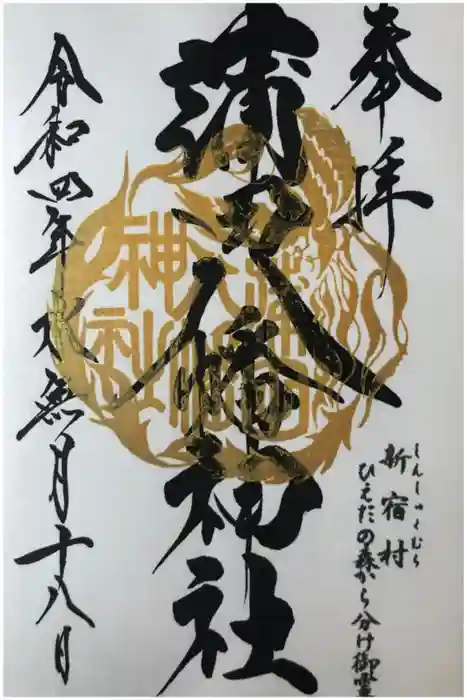 奉拝
蒲田八幡神社
令和四年水無月十八日
しんしゅくむら
新宿村
ひえだの森から分け御霊
蒲田
八幡
神社